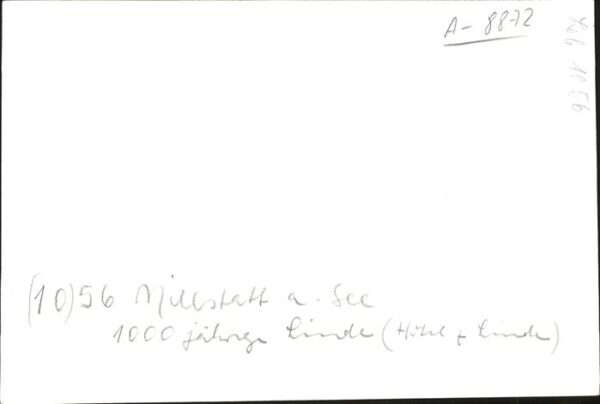 A-8872
(10)56 Millstatt a. See
1000 jährige Linde (Hotel z. Linde)